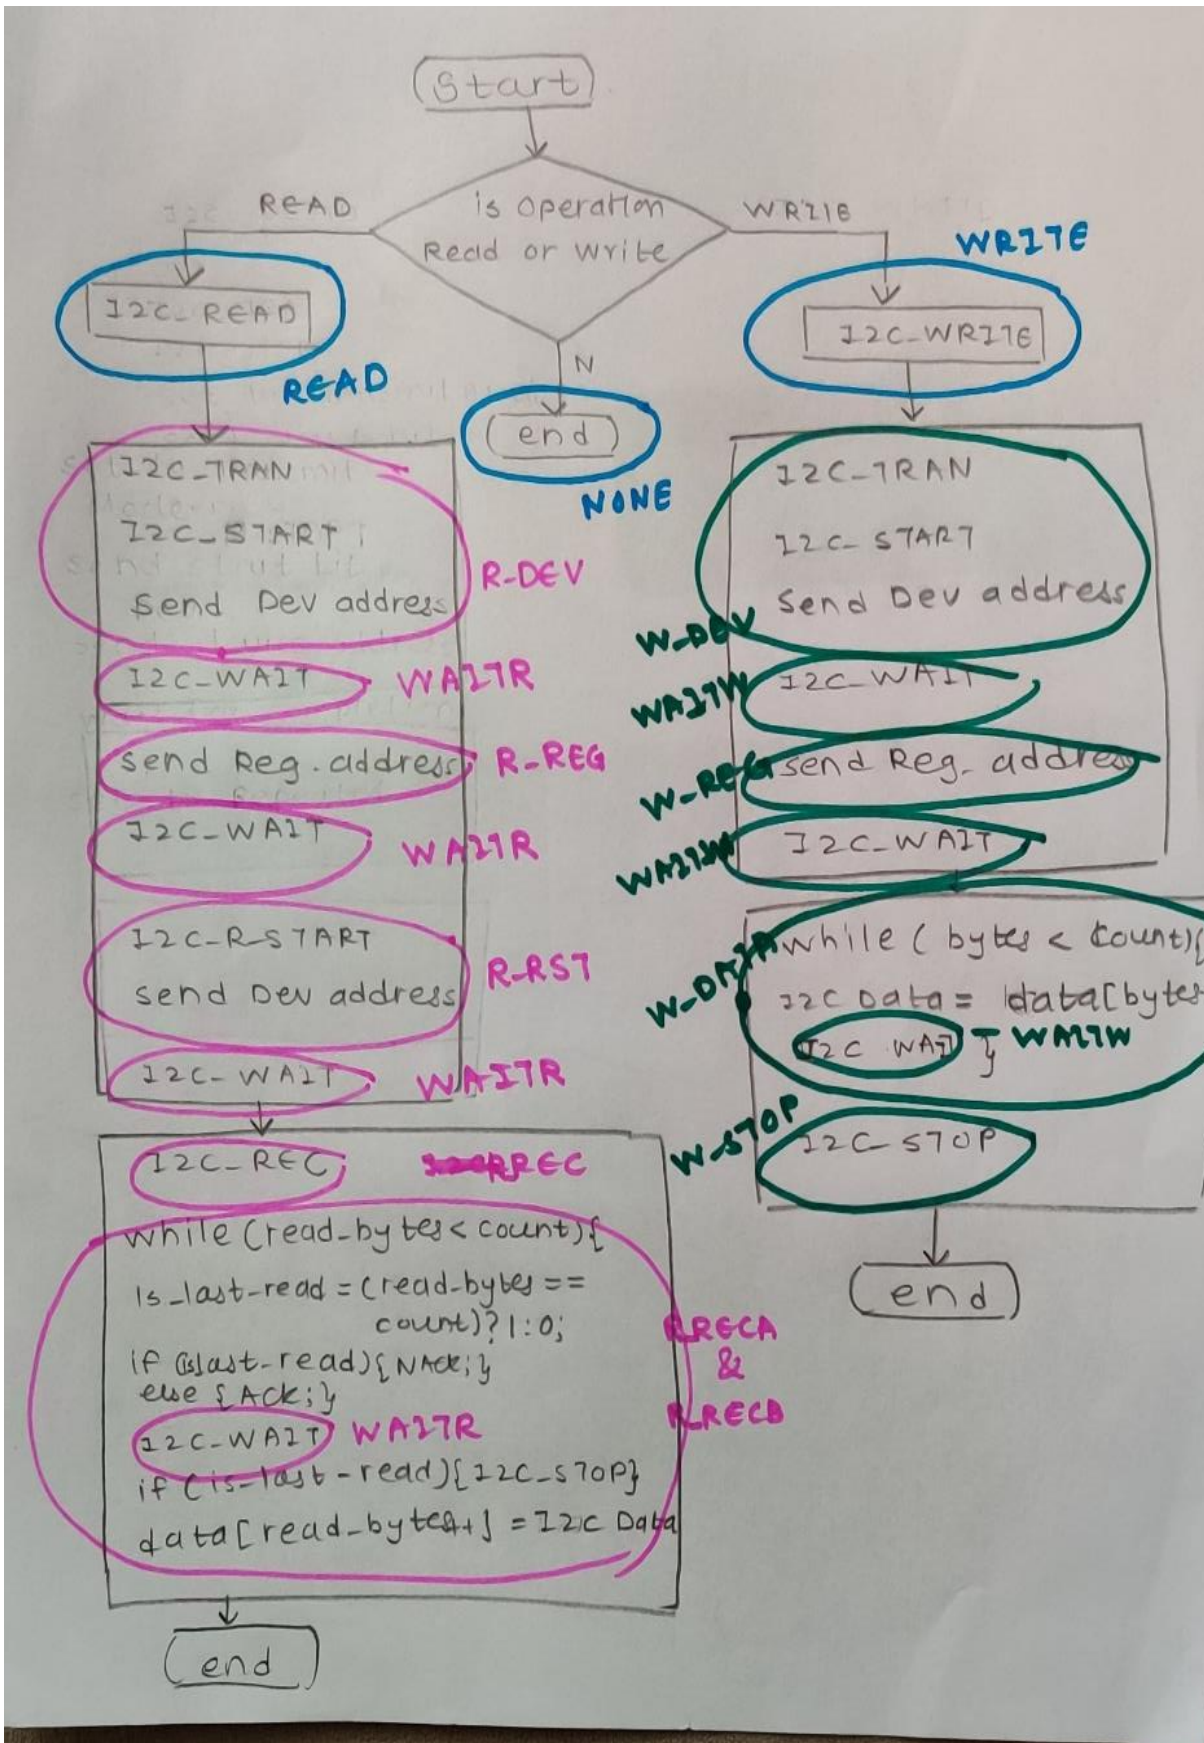 Start
READ
is operation
Read or write
WRITE
WRITE
I2C_READ
READ
I2C_WRITE
N
end
NONE
I2C_TRAN
I2C_START
Send Dev address
R-DEV
I2C_WAIT
WAITR
send Reg. address
R-REG
I2C_WAIT
WAITR
I2C-R-START
send Dev address
R-RST
I2C-WAIT
WAITR
I2C_REC
REC
while (read-bytes < count){
is_last-read = (read-bytes ==
count)? 1:0;
if (islast-read){NAck;}
else {Ack;}
I2C-WAIT
WAITR
if (is-last-read){I2C_STOP}
data[read_bytes++] = I2C Data
RECA
&
R_RECB
end
I2C_TRAN
I2C_START
Send Dev address
W_DEV
I2C_WAIT
WAITW
send Reg. address
W_REG
I2C_WAIT
WAITW
while ( bytes < count){
W_DATA
I2C Data = data[bytes
I2C WAIT }
WAITW
I2C_STOP
W_STOP
end